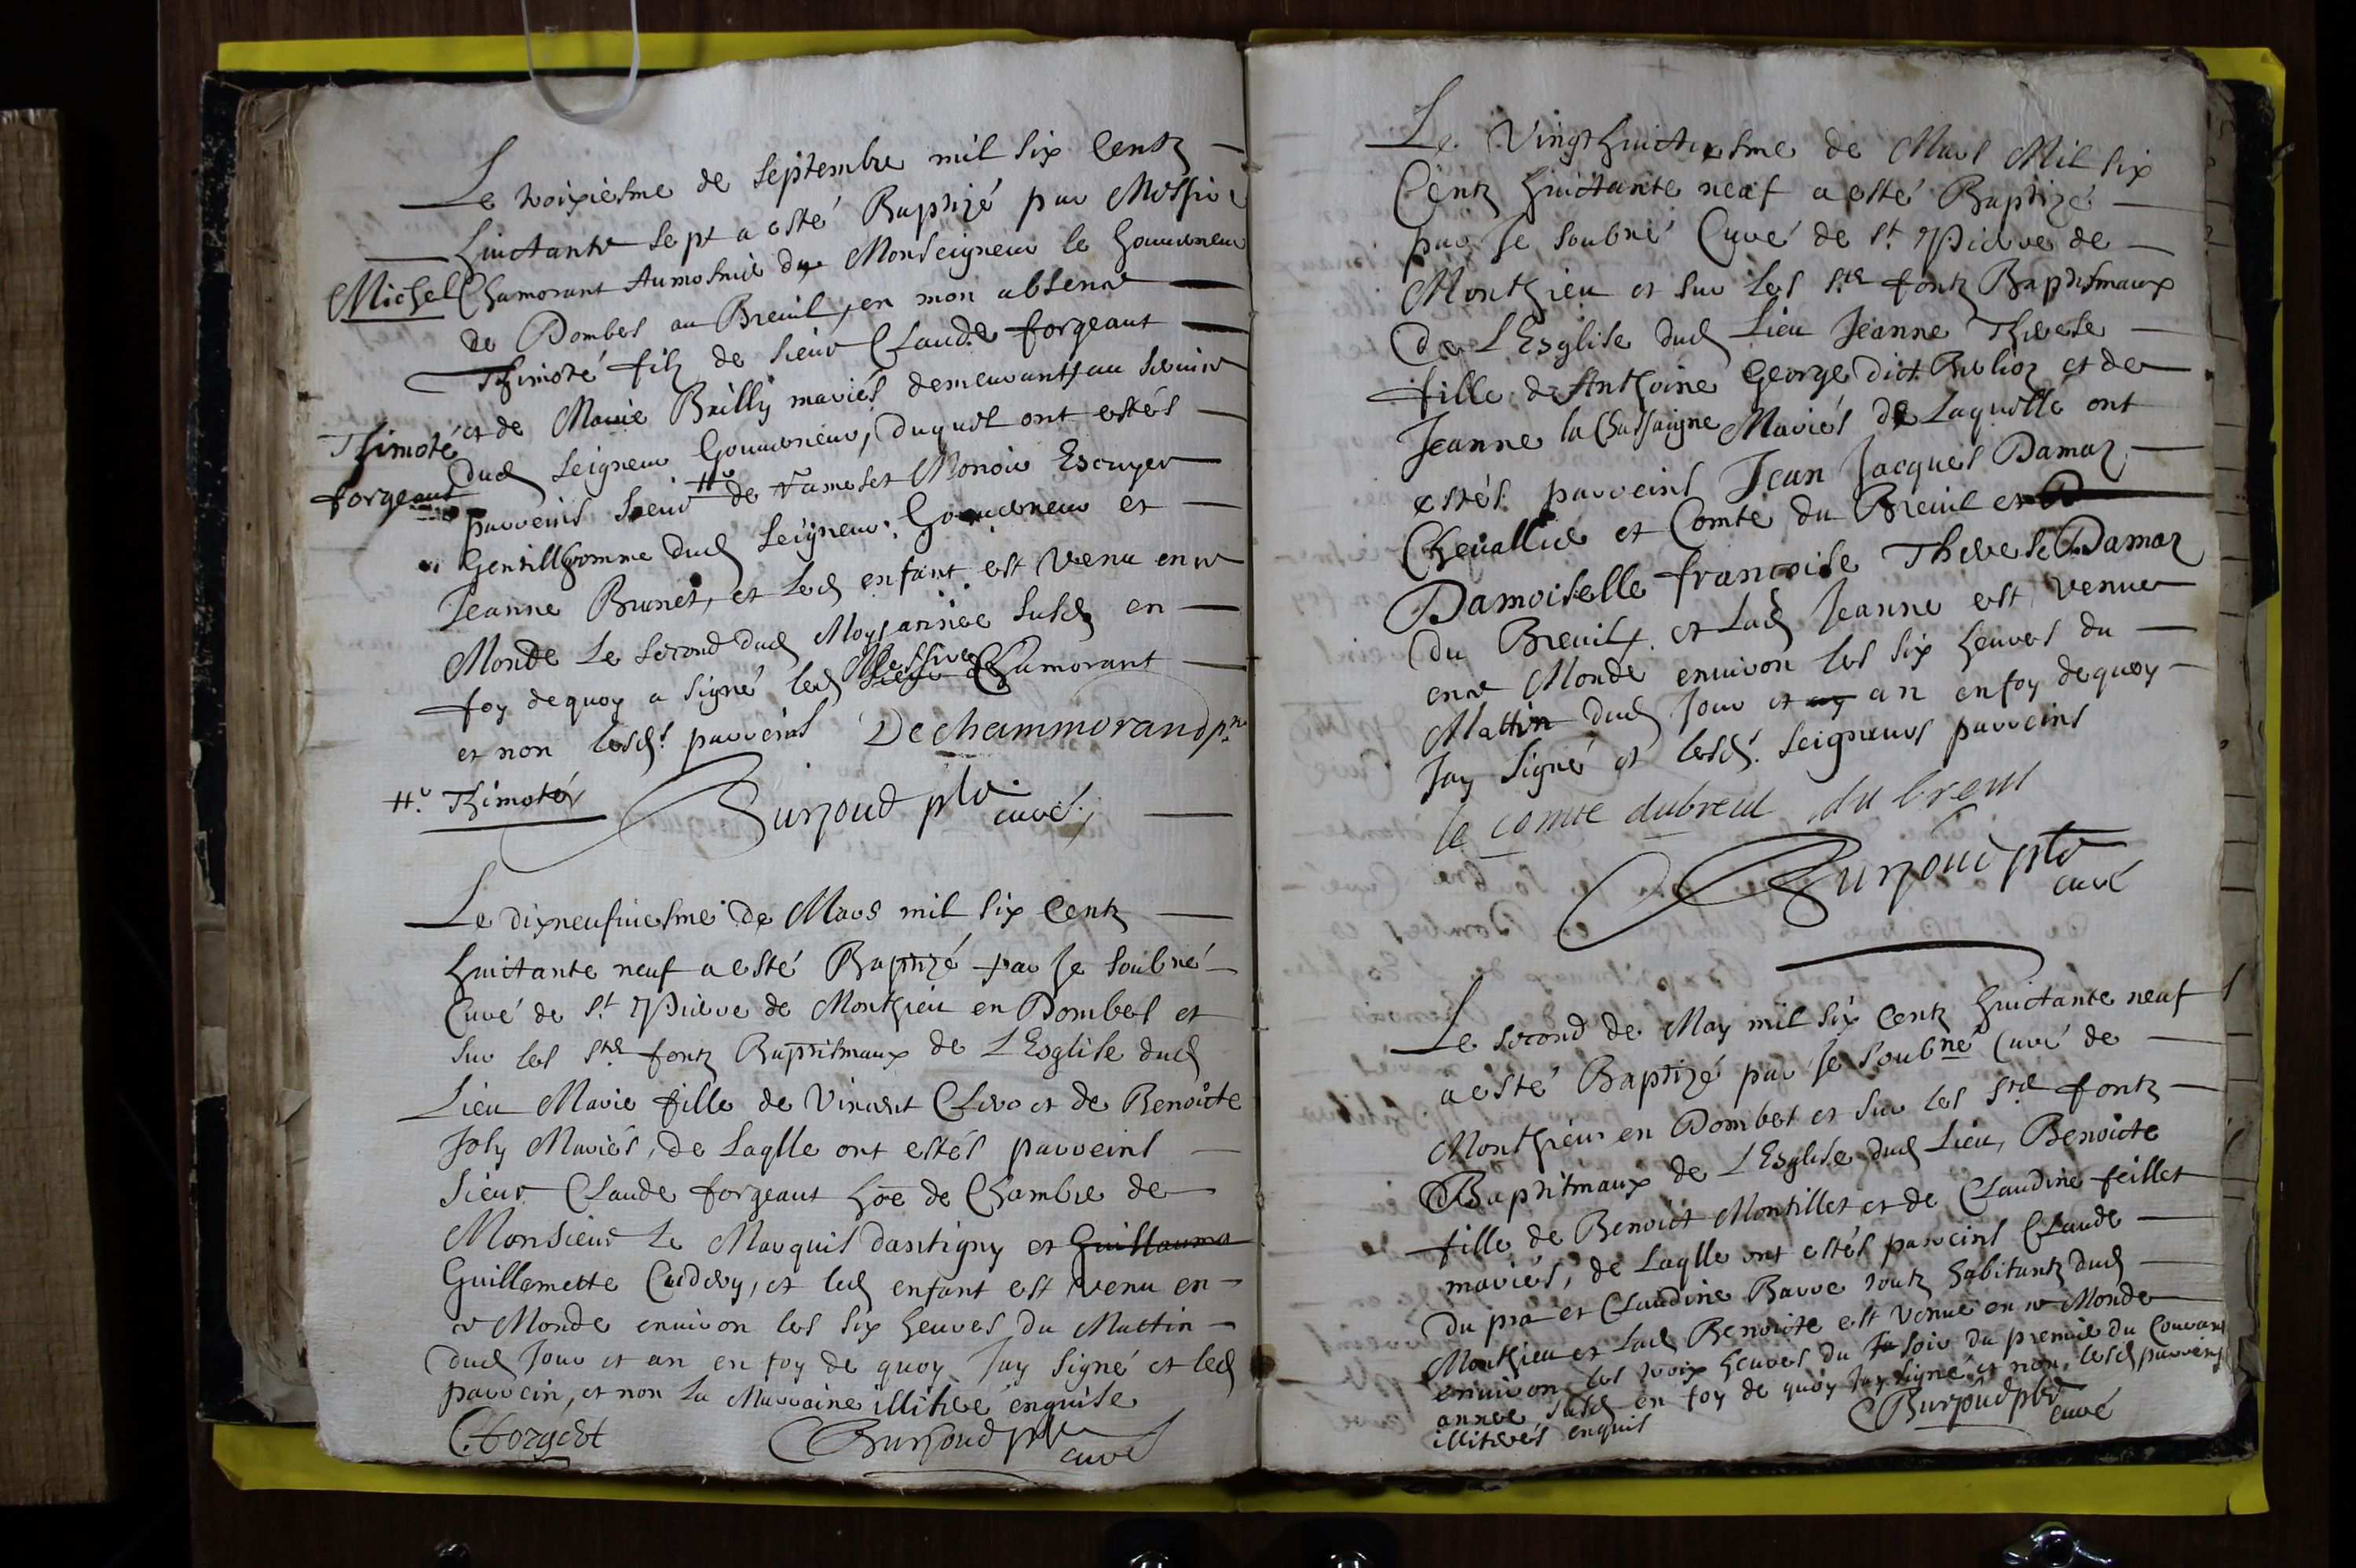 Le troixiesme de septembre mil six Centz
huictante sept a esté Baptizé par Messire
Michel Chamorant Aumosnie du Monseigneur le Gouuerneur
de Dombes au Breuil, en mon absence
Thimoté filz de sieur Claude forgeant
et de Marie Bailly mariés demeurants au seruice
Thimoté
forgeant
dud seigneur Gouuerneur, duquel ont estés
parreins sieur #e de Monoir Escuyer
Gentillhomme dud seigneur Gouuerneur et
Jeanne Brunet, et led enfant est venu en ce
Monde le second dud Moys année susd en
foy dequoy a signé led Messire Chamorant
et non lesds parreins Dechammorand ptre
#e Thimoté
Burjoud ptre
curé
Le dixneufuiesme de Mars mil six Centz
huictante neuf a esté Baptizé par Je soubné
Curé de St Pierre de Monthieu en Dombes et
sur les stes fontz Baptismaux de L'Esglise dud
Lieu Marie fille de Vincent Clero et de Benoicte
Joly Mariés, de Laqlle ont estés parreins
sieur Claude forgeant hõe de Chambre de
Monsieur le Marquis dantigny et Guillauma
Guillemette Cudery, et led enfant est venu en
ce Monde enuiron les six heures du Mattin
dud Jour et an en foy de quoy Jay signé et led
parrein, et non la Marraine illiterée enquise
C. forgeot
Burjoud ptre
curé
Le Vingthuictiesme de Mars Mil six
Centz huictante neuf a esté Baptizé
par Je soubné Curé de St Pierre de
Monthieu et sur les stes fontz Baptismaux
De L'Esglise dud Lieu Jeanne Therese
fille de Anthoine George dict et de
Jeanne la Chassaigne Mariés de Laquelle ont
estés parreins Jean Jacques Damaz
Cheuallier et Comte du Breuil et D
Damoiselle francoise Therese Damaz
du Breuil, et Lad Jeanne est venue
en ce Monde enuiron les six heures du
Mattin dud Jour et an en foy dequoy
Jay signé et lesds seigneurs parreins
le comte dubreul du breul
Burjoud ptre
curé
Le second de May mil six Centz huictante neuf
a esté Baptizé par Je soubné Curé de
Monthieur en Dombes et sur les stes fontz
Baptismaux de L'Esglise dud Lieu, Benoicte
fille de Benoict Montillet et de Claudine feillet
mariés, de Laqlle ont estés parreins Claude
Du pra et Claudine Barre toutz habitantz dud
Monthieu et Lad Benoicte est venue en ce Monde
enuiron les troix heures du soir du premie du Courant
annee susd en foy de quoy Jay signé et non lesd parreins
illiterés enquis
Burjoud ptre
curé